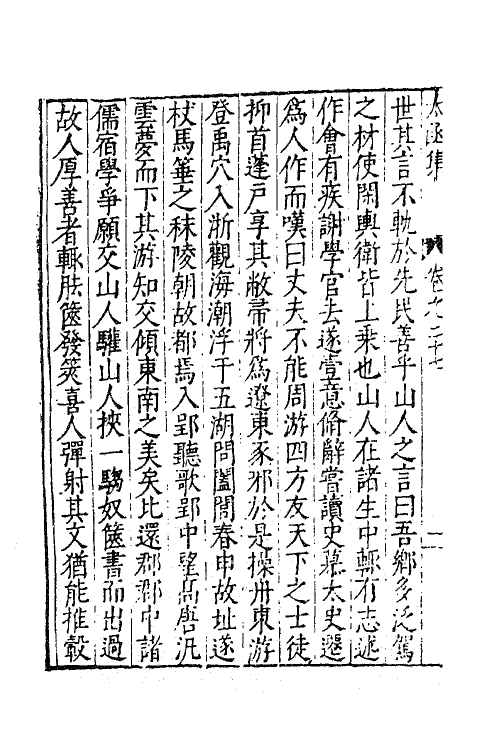 太函集 卷之二十七 二
世其言不軌於先民善乎山人之言曰吾鄉多泛駕
之材使閑輿衛皆上乘也山人在諸生中輒有志述
作會有疾謝學官去遂壹意脩辭嘗讀史慕太史遷
爲人作而嘆曰丈夫不能周游四方友天下之士徒
抑首蓬戸享其敝帚將爲遼東豕邪於是操舟東游
登禹穴入浙觀海潮浮于五湖問闔閭春申故址遂
杖馬箠之秣陵朝故都焉入郢聽歌郢中望高唐汎
雲夢而下其游知交傾東南之美矣比還郡郡中諸
儒宿學爭願交山人驩山人挾一騶奴篋書而出過
故人厚善者輒胠篋發筴喜人彈射其文猶能推轂